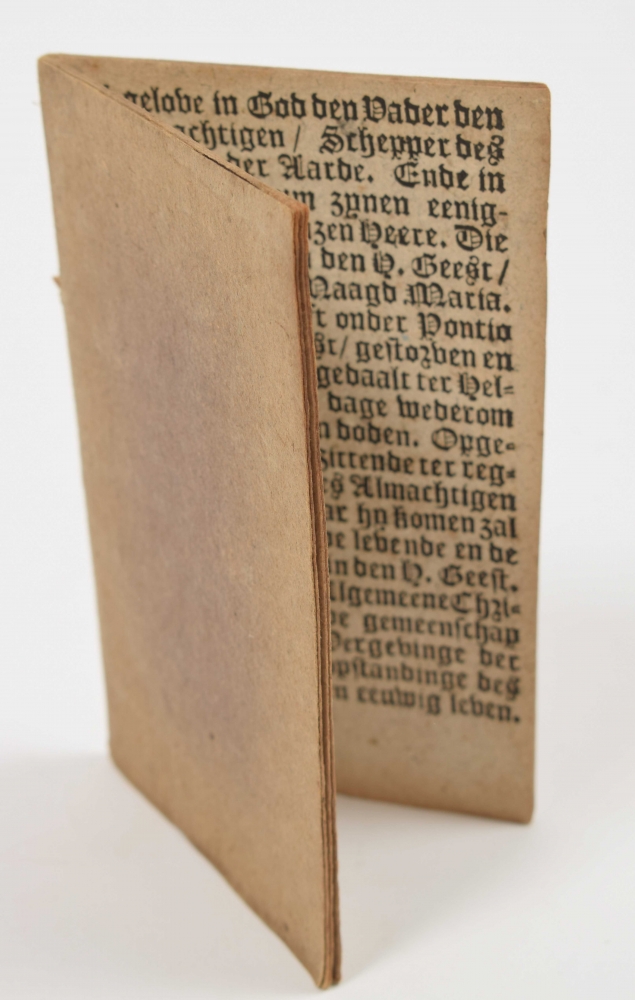 gelove in God den Vader den
achtigen / Schepper des
der Aarde. Ende in
zynen eenig-
zen Heere. Die
den H. Geest /
Maagd Maria.
onder Pontio
st / gestorven en
gedaalt ter Hel-
dage wederom
dooden. Opge-
zittende ter reg-
Almachtigen
ar hy komen zal
levende en de
in den H. Geest.
lgemeene Chri-
gemeenschap
Vergevinge der
opstandinge des
n eeuwig leven.